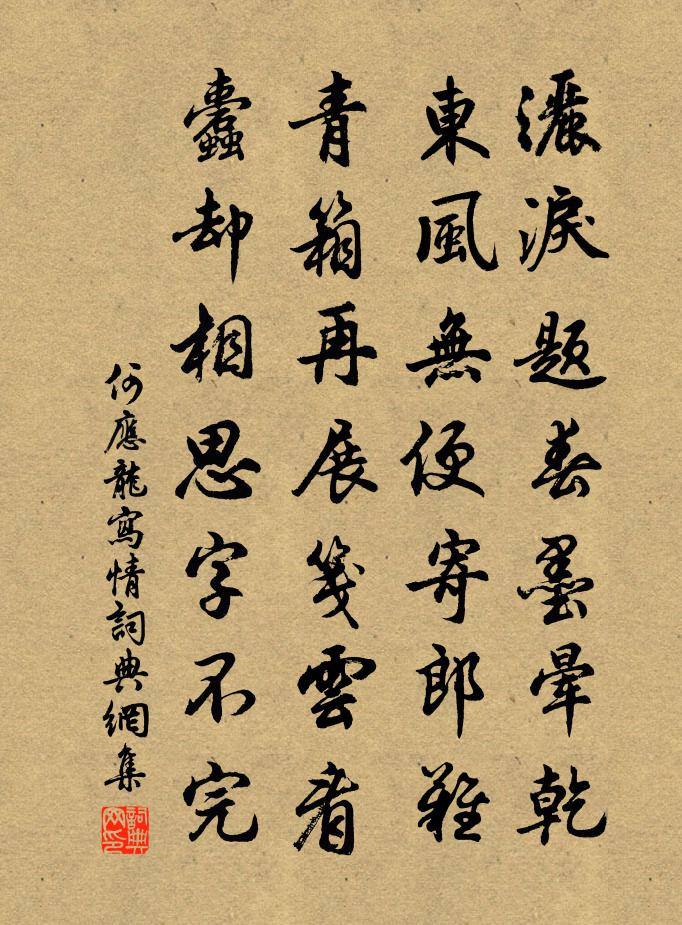 灑淚題春墨暈乾
東風無便寄郎難
青箱再展箋雲看
蠹却相思字不完
何應龍寫情詞典網集
詞典网印